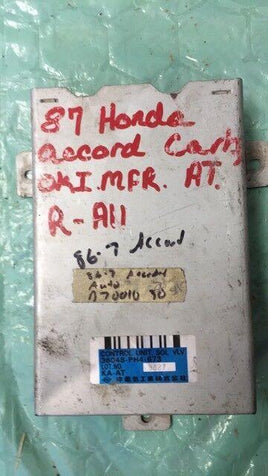 87 Honda
accord Carb
OKI.MFR. AT.
R-A11
86-7 Accord
86-7 Accord
Auto
CONTROL UNIT, SOL VLV
36048-PH4-673
LOT NO.
KA-AT